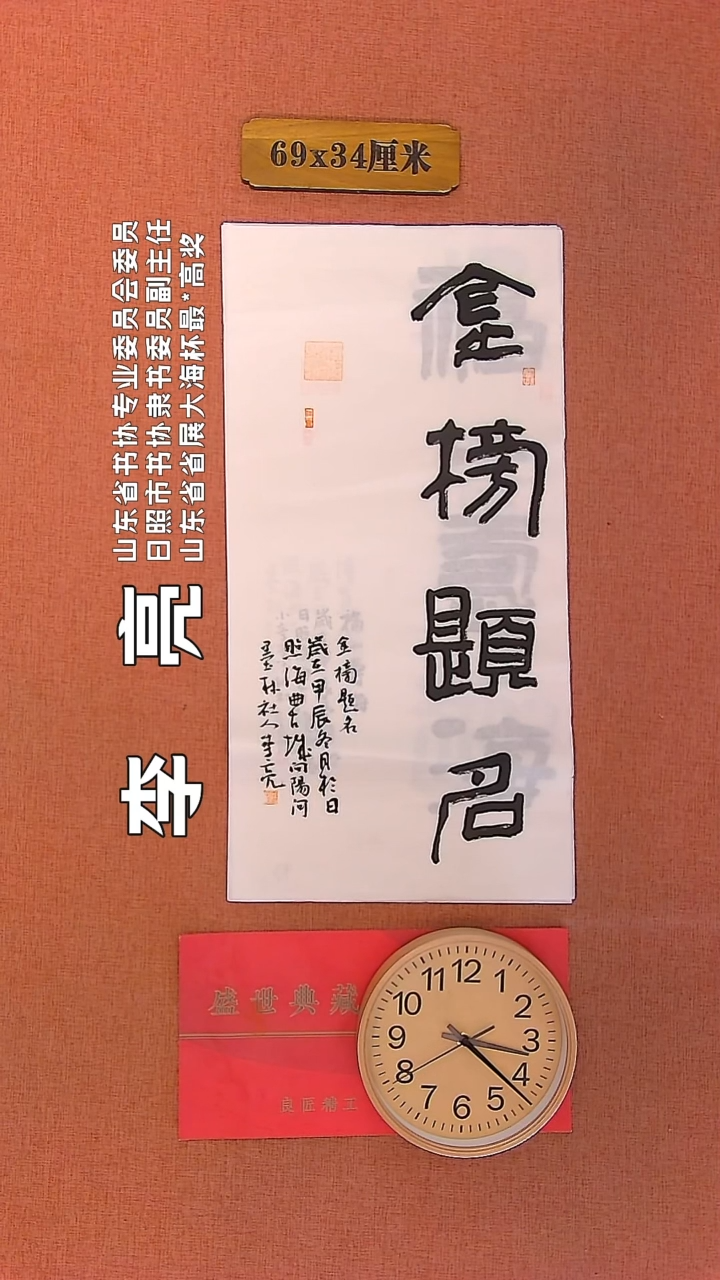 69x34厘米
山东省书协专业委员会委员
日照市书协隶书委员副主任
山东省省展大海杯最*高奖
李亮
金榜题名
金榜題名
歲在甲辰冬月於日
照海曲古城向陽河
李亮
盛世典藏
良匠精工
12
1
2
3
4
5
6
7
8
9
10
11